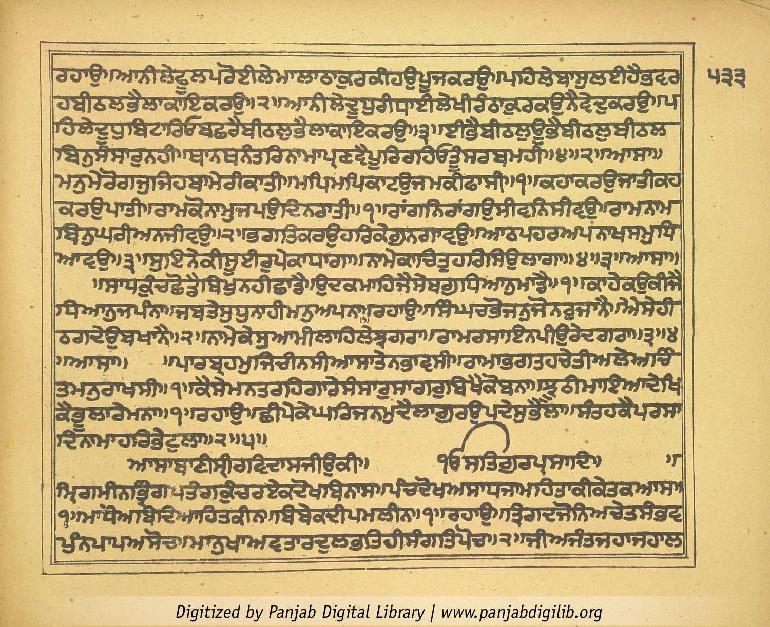 ਰਹਾਉ॥ਆਨੀਲੇਫੂਲਪਰੋਈਲੇਮਾਲਾਠਾਕੁਰਕੀਹਉਪੂਜਕਰਉ॥ਪਹਿਲੇਬਾਸੁਲਈਹੈਭਵਰ ੫੩੩
ਹਬੀਠਲਭੈਲਾਕਾਇਕਰਉ॥੨॥ਆਨੀਲੇਦੂਧੁਰੀਧਾਈਲੇਖੀਰੰਠਾਕੁਰਕਉਨੈਵੇਦੁਕਰਉ॥ਪ
ਹਿਲੇਦੂਧੁਬਿਟਾਰਿਓਬਛਰੈਬੀਠਲੁਭੈਲਾਕਾਇਕਰਉ॥੩॥ਈਭੈਬੀਠਲੁਊਭੈਬੀਠਲੁਬੀਠਲ
ਬਿਨੁਸੰਸਾਰੁਨਹੀ॥ਥਾਨਥਨੰਤਰਿਨਾਮਾਪ੍ਰਣਵੈਪੂਰਿਰਹਿਓਤੂੰਸਰਬਮਹੀ॥੪॥੨॥ਆਸਾ॥
ਮਨੁਮੇਰੋਗਜੁਜਿਹਬਾਮੇਰੀਕਾਤੀ॥ਮਪਿਮਪਿਕਾਟਉਜਮਕੀਫਾਸੀ॥੧॥ਕਹਾਕਰਉਜਾਤੀਕਹ
ਕਰਉਪਾਤੀ॥ਰਾਮਕੋਨਾਮੁਜਪਉਦਿਨਰਾਤੀ॥੧॥ਰਾਂਗਨਿਰਾਂਗਉਸੀਵਨਿਸੀਵਉ॥ਰਾਮਨਾਮ
ਬਿਨੁਘਰੀਅਨਜੀਵਉ॥੨॥ਭਗਤਿਕਰਉਹਰਿਕੇਗੁਨਗਾਵਉ॥ਆਠਪਹਰਅਪਨਾਖਸਮੁਧਿ
ਆਵਉ॥੩॥ਸੁਇਨੇਕੀਸੂਈਰੁਪੇਕਾਧਾਗਾ॥ਨਾਮੇਕਾਚਿਤੁਹਰਿਸਿਉਲਾਗਾ॥੪॥੩॥ਆਸਾ॥
॥ਸਾਪੁਕੁੰਚਛੋਡੈਬਿਖੁਨਹੀਛਾਡੈ॥ਉਦਕਮਾਹਿਜੈਸੇਬਗੁਧਿਆਨੁਮਾਡੈ॥੧॥ਕਾਹੇਕਉਕੀਜੈ
ਧਿਆਨੁਜਪੰਨਾ॥ਜਬਤੇਸੁਧੁਨਾਹੀਮਨੁਅਪਨਾ॥ਰਹਾਉ॥ਸਿੰਘਚਭੋਜਨੁਜੋਨਰੁਜਾਨੈ॥ਐਸੇਹੀ
ਠਗਦੇਉਬਖਾਨੈ॥੨॥ਨਾਮੇਕੇਸੁਆਮੀਲਾਹਿਲੇਝਗਰਾ॥ਰਾਮਰਸਾਇਨਪੀਉਰੇਦਗਰਾ॥੩॥੪
॥ਆਸਾ॥ ॥ਪਾਰਬ੍ਰਹਮੁਜਿਚੀਨਸੀਆਸਾਤੇਨਭਾਵਸੀ॥ਰਾਮਾਭਗਤਹਚੇਤੀਅਲੇਅਚਿੰ
ਤਮਨੁਰਾਖਸੀ॥੧॥ਕੈਸੇਮਨਤਰਹਿਗਾਰੇਸੰਸਾਰੁਸਾਗਰੁਬਿਖੈਕੋਬਨਾ॥ਝੂਠੀਮਾਇਆਦੇਖਿ
ਕੈਭੂਲਾਰੇਮਨਾ॥੧॥ਰਹਾਉ॥ਛੀਪੇਕੇਘਰਿਜਨਮੁਦੈਲਾਗੁਰਉਪਦੇਸੁਭੈਲਾ॥ਸੰਤਹਕੈਪਰਸਾ
ਦਿਨਾਮਾਹਰਿਭੇਟੁਲਾ॥੨॥੫॥
ਆਸਾਬਾਣੀਸ੍ਰੀਰਵਿਦਾਸਜੀਉਕੀ॥ ੴਸਤਿਗੁਰਪ੍ਰਸਾਦਿ॥ ॥
ਮ੍ਰਿਗਮੀਨਭ੍ਰਿੰਗਪਤੰਗਕੁੰਚਰਏਕਦੋਖਬਿਨਾਸ॥ਪੰਚਦੋਖਅਸਾਧਜਾਮਹਿਤਾਕੀਕੇਤਕਆਸ॥
੧॥ਮਾਧੋਅਬਿਦਿਆਹਿਤਕੀਨ॥ਬਿਬੇਕਦੀਪਮਲੀਨ॥੧॥ਰਹਾਉ॥ਤ੍ਰਿਗਦਜੋਨਿਅਚੇਤਸੰਭਵ
ਪੁੰਨਪਾਪਅਸੋਚ॥ਮਾਨੁਖਾਅਵਤਾਰਦੁਲਭਤਿਹੀਸੰਗਤਿਪੋਚ॥੨॥ਜੀਅਜੰਤਜਹਾਜਹਾਲ
Digitized by Panjab Digital Library | www.panjabdigilib.org